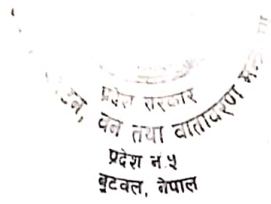 प्रदेश सरकार
वन तथा वातावरण
प्रदेश नं.५
बुटवल, नेपाल